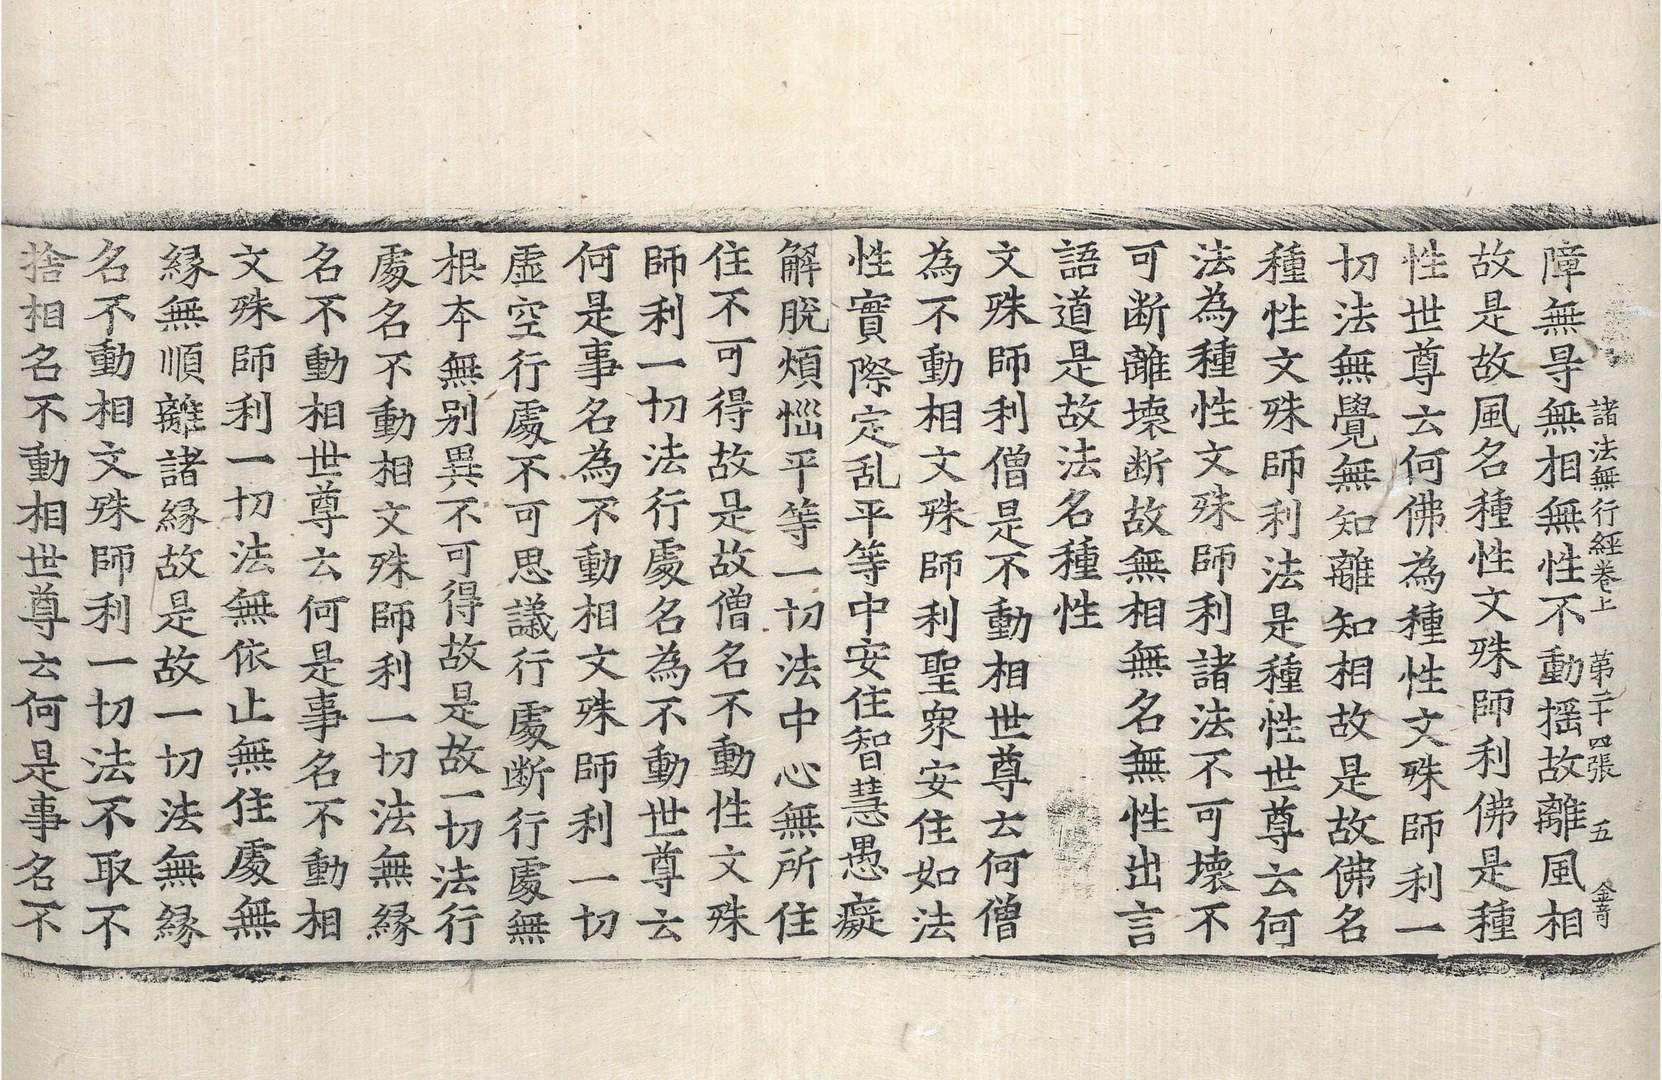 諸法無行經卷上 第二十四張 五 金奇
障無㝵無相無性不動揺故離風相
故是故風名種性文殊師利佛是種
性世尊云何佛為種性文殊師利一
切法無覺無知離知相故是故佛名
種性文殊師利法是種性世尊云何
法為種性文殊師利諸法不可壞不
可断離壞断故無相無名無性出言
語道是故法名種性
文殊師利僧是不動相世尊云何僧
為不動相文殊師利聖衆安住如法
性實際定乱平等中安住智慧愚癡
解脫煩惱平等一切法中心無所住
住不可得故是故僧名不動性文殊
師利一切法行處名為不動世尊云
何是事名為不動相文殊師利一切
虛空行處不可思議行處断行處無
根本無别異不可得故是故一切法行
處名不動相文殊師利一切法無緣
名不動相世尊云何是事名不動相
文殊師利一切法無依止無住處無
緣無順離諸緣故是故一切法無緣
名不動相文殊師利一切法不取不
捨相名不動相世尊云何是事名不